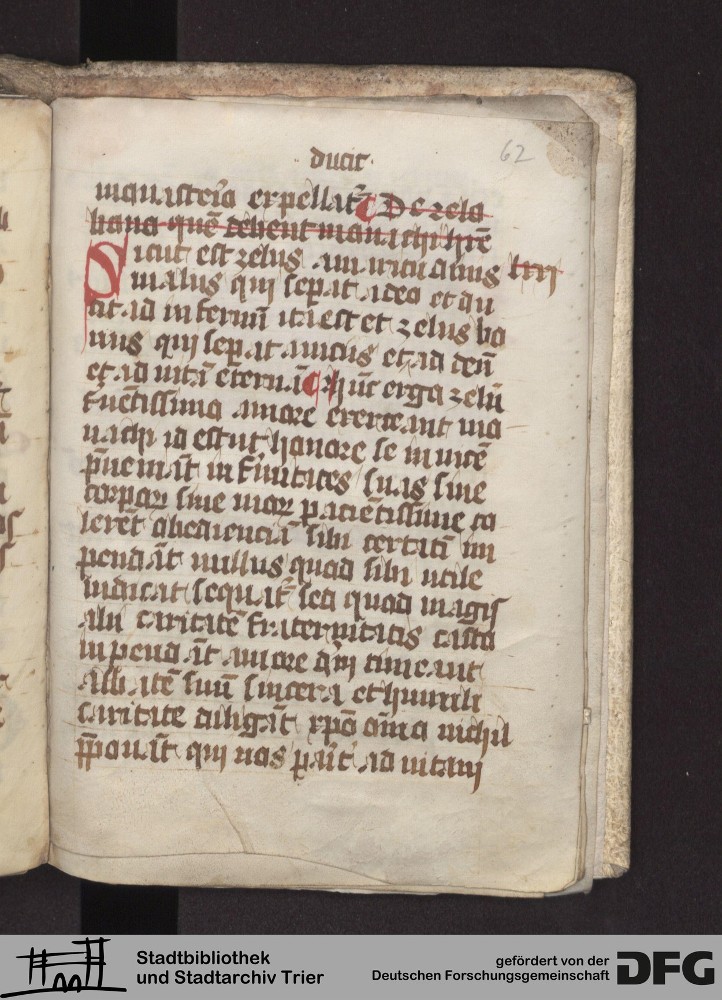 ducit
62
monasterio expellat᷑ De zelo
bono quē debent monachi hr̄e
Sicut est zelus amaritudinis lxxij
malus qui sepat a deo et du
cit ad infernū ita est et zelus bo
nus qui sepat a uiciis et ad deū
et ad uitā eternā Hūc ergo zelū
fuētissimo amore exerceant mo
nachi id est ut honore se inuicē
p̄ueniāt infirmitates suas siue
corpoꝝ siue moꝝ paciētissime to
lerēt obedienciā sibi certatī im
pendāt nullus quod sibi utile
iudicat sequat᷑ sed quod magis
alii caritatē fraternitatis casto
inpendāt amore dm̄ timeant
abbatē suū sincera et humili
caritate diligāt xp̄o om̄o nichil
p̄ponāt qui nos parit᷑ ad uitam
Stadtbibliothek
und Stadtarchiv Trier
gefördert von der
Deutschen Forschungsgemeinschaft
DFG